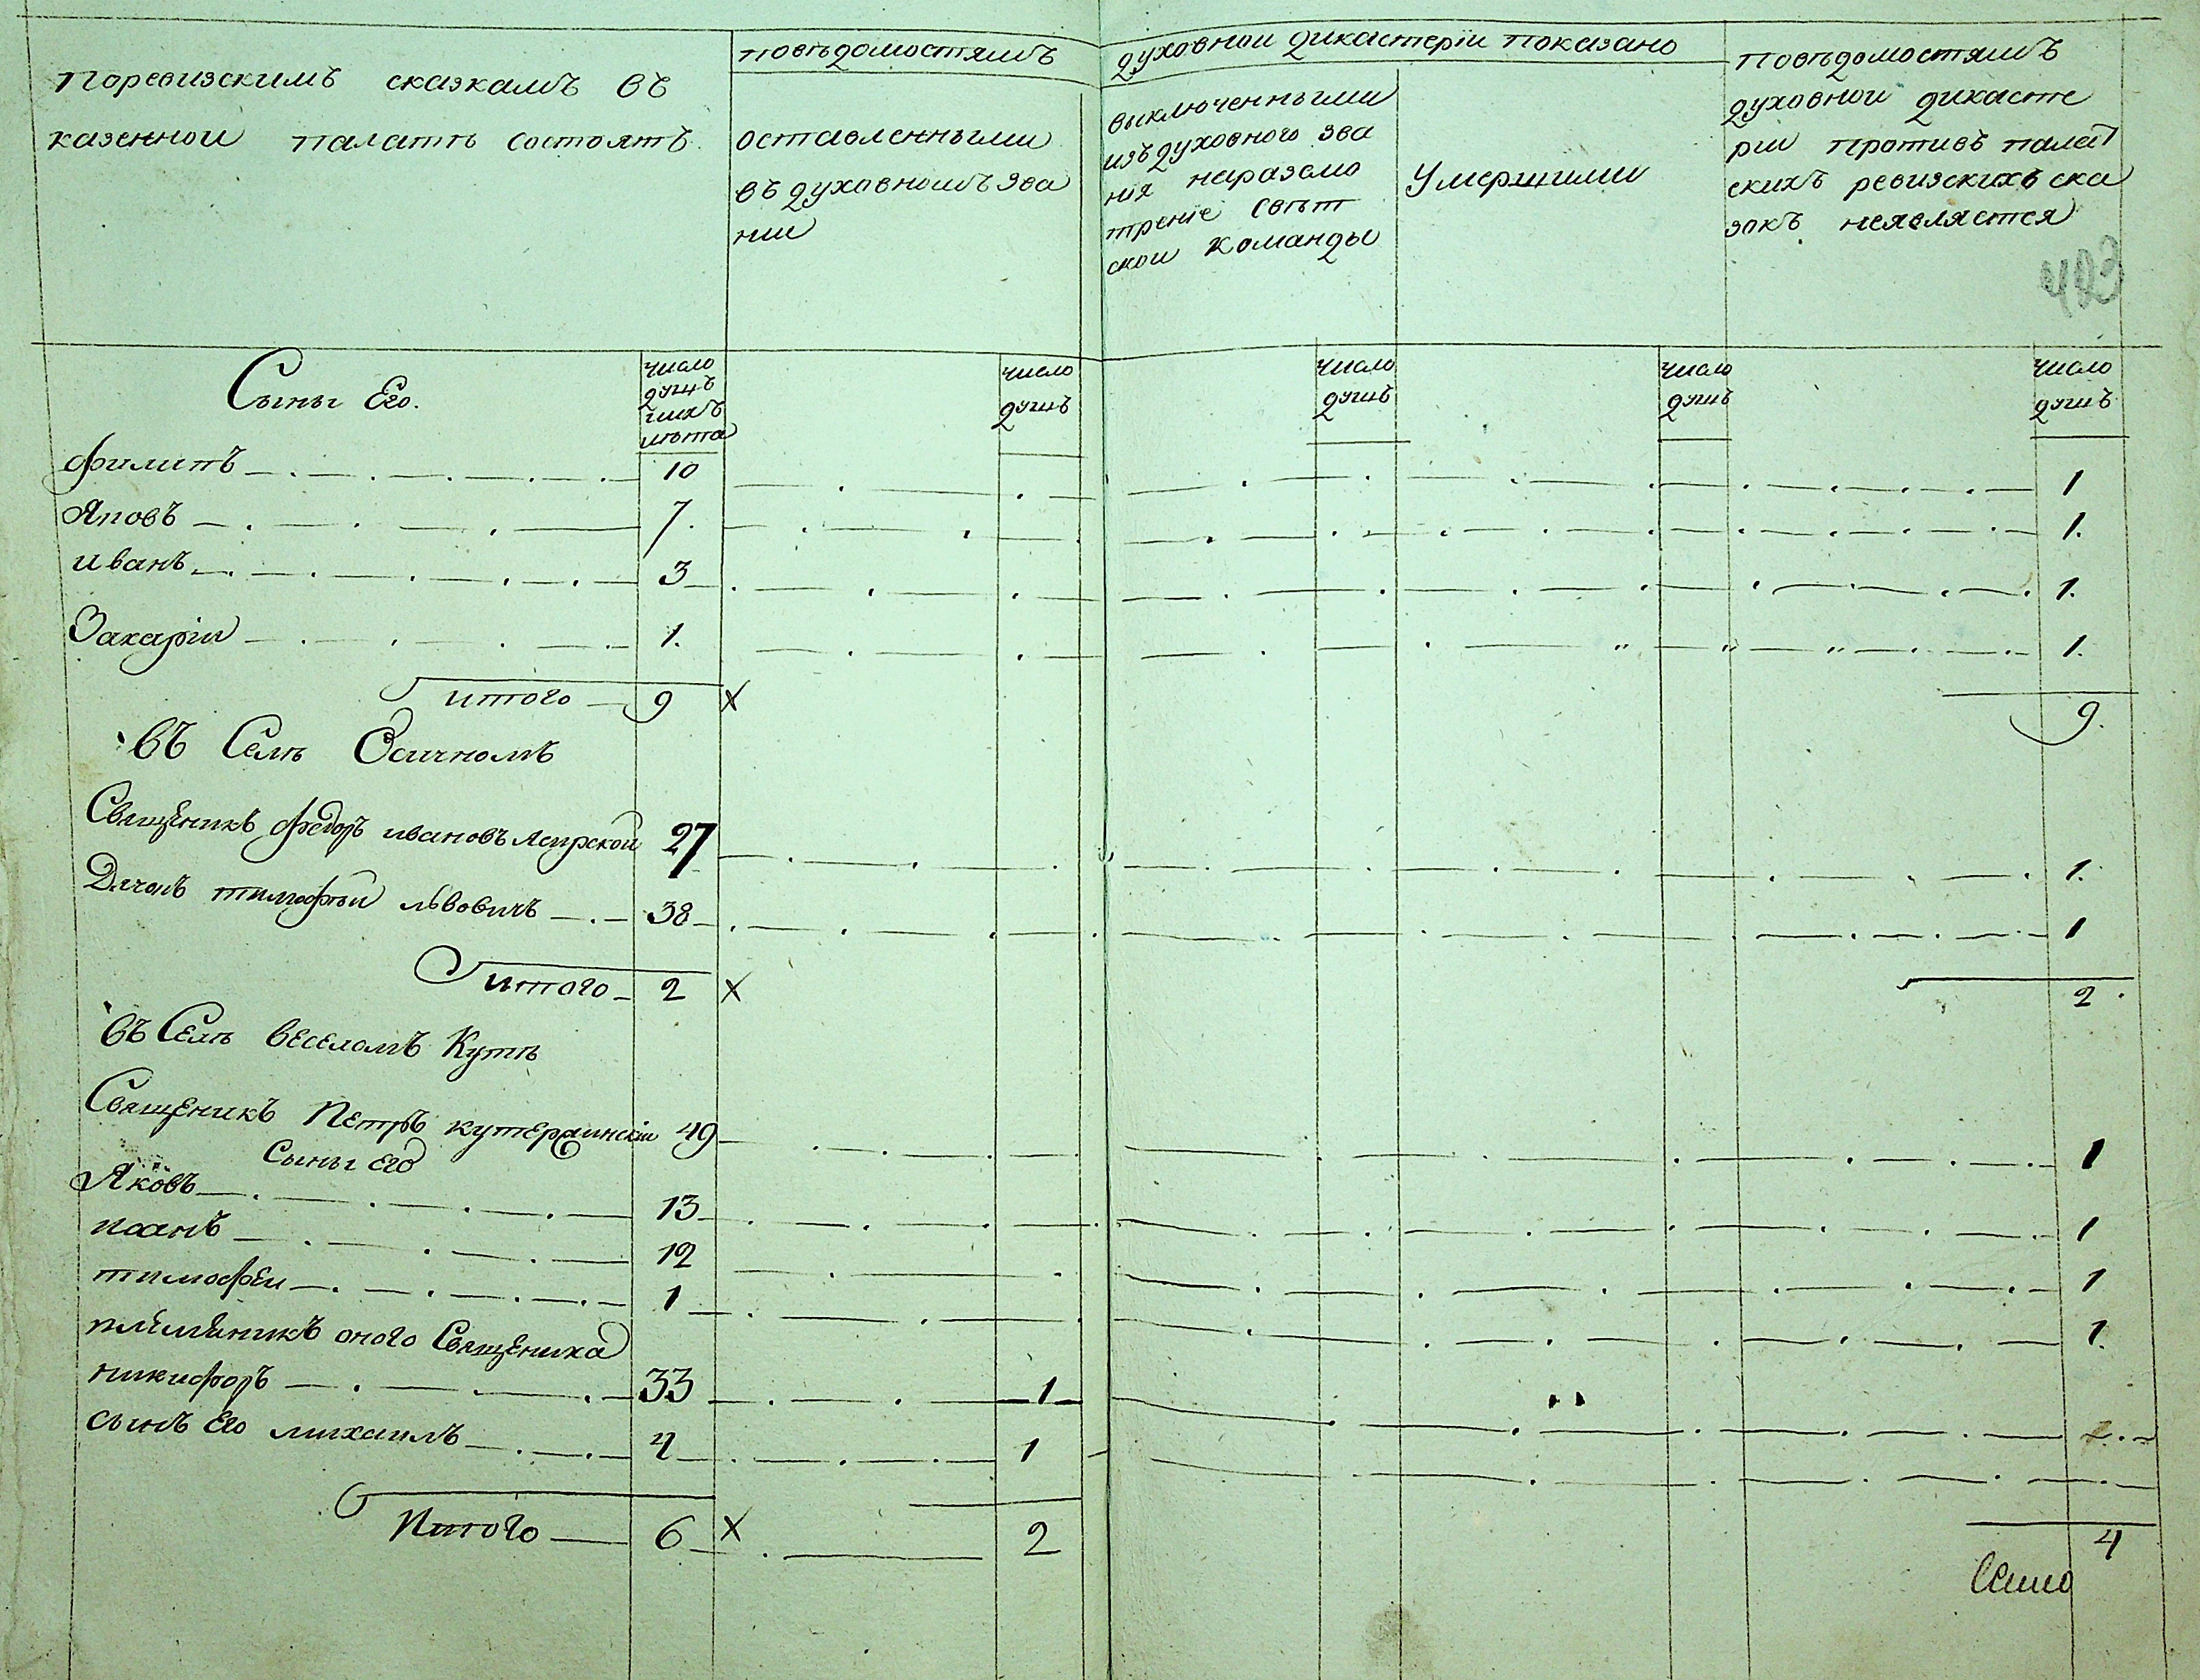 поревизскимъ сказкамъ въ
казенной палатѣ состоятъ
повѣдомостямъ
духовнои дикастеріи показано
оставленными
въ духовномъ зва
нии
выключенными
изъ духовного зва
нія наразсмо
треніе свѣт
скои команды
умершими
повѣдомостямъ
духовнои дикасте
рии противъ палат
скихъ ревизскихъ ска
зокъ неявляется
423
Сыны Его.
число
душъ
ихъ
лѣта
число
душъ
число
душъ
число
душъ
число
душъ
филипъ 10 1
Яковъ 7. 1.
иванъ 3 1.
Захаріи 1. 1.
итого 9 х 9.
въ Селѣ Осичномъ
Священикъ федоръ ивановъ 27 1.
Дячокъ тимофѣи львовичъ 38 1
итого 2 х 2.
въ Селѣ веселомъ Кутѣ
Священикъ Петръ 49 1
Сыны Его
Яковъ 13 1
иоанъ 12 1
тимофеи 1 1.
племѣникъ оного Священика
никифоръ 33 1
сынъ Его михаилъ 4 1
Итого 6 х 2 4